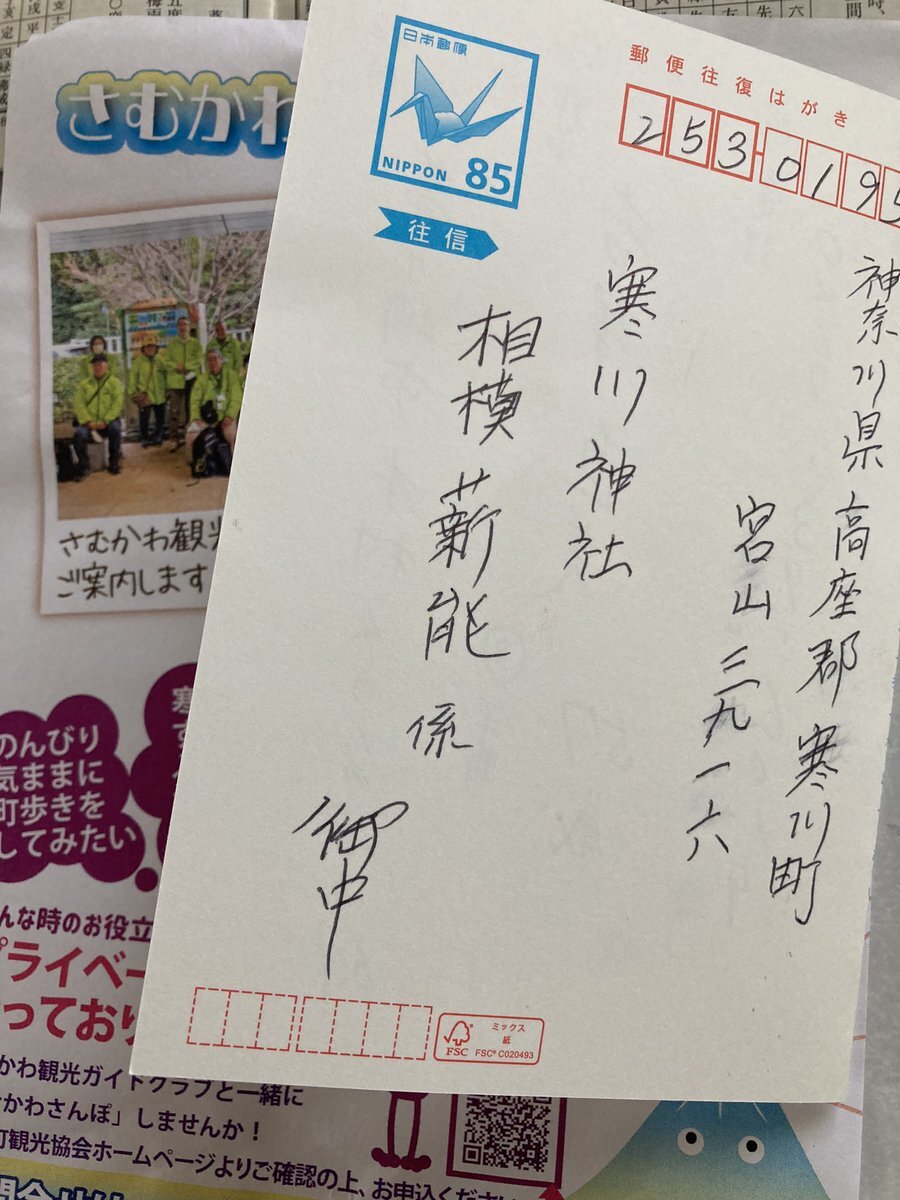 さむかわ
さむかわ観光
ご案内します
のんびり
気ままに
町歩きを
してみたい
んな時のお役立
プライベー
っており
かわ観光ガイドクラブと一緒に
かわさんぽ」しませんか！
町観光協会ホームページよりご確認の上、お申込ください
日本郵便
NIPPON 85
往信
郵便往復はがき
253-0195
神奈川県高座郡寒川町
宮山三九一六
寒川神社
相模薪能係
御中
ミックス
紙
FSC
FSC® C020493